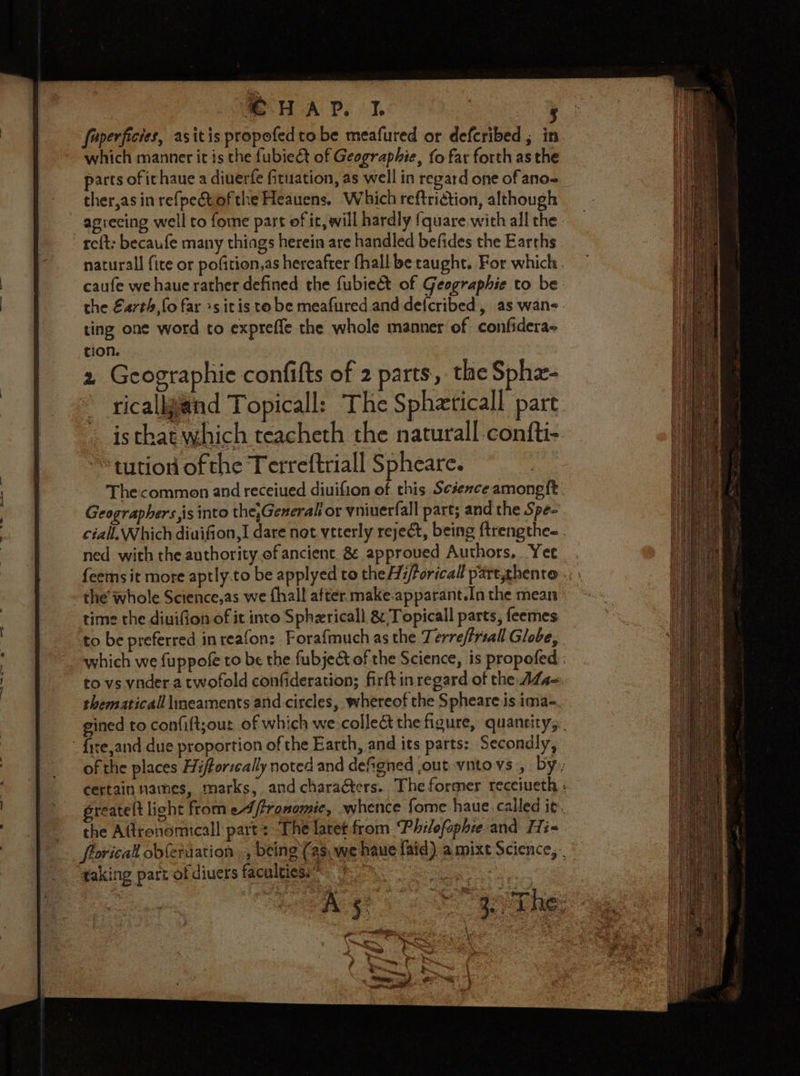 CHAP. I. 5
ſuperficies, as it is propoſed to be meaſured or deſcribed; in
which manner it is the ſubiect of Geographie, ſo far forth as the
parts of it haue a diuerſe ſituation, as well in regard one of ano-
ther, as in reſpect of the Heauens. Which reſtriction, although
agreeing well to ſome part of it, will hardly ſquare with all the
reſt: becauſe many things herein are handled beſides the Earths
naturall ſite or poſition, as hereafter ſhall be taught. For which
cauſe we haue rather defined the ſubiect of Geographie to be
the Earth, ſo far as it is to be meaſured and deſcribed, as wan-
ting one word to expreſſe the whole manner of conſidera-
tion.
2 Geographie conſiſts of 2 parts, the Sphæ-
ricall, and Topicall: The Sphæricall part
is that which teacheth the naturall conſti-
tution of the Terreſtriall Spheare.
The common and receiued diuiſion of this Science amongſt
Geographers, is into the Generall or vniuerſall part; and the Spe-
ciall. Which diuiſion, I dare not vtterly reject, being ſtrengthe-
ned with the authority of ancient & approued Authors. Yet
ſeems it more aptly to be applyed to the Hiſtoricall part, then to
the whole Science, as we ſhall after make apparant. In the mean
time the diuiſion of it into Sphæricall & Topicall parts, ſeemes
to be preferred in reaſon: Foraſmuch as the Terreſtriall Globe,
which we ſuppoſe to be the ſubject of the Science, is propoſed
to vs vnder a twofold conſideration; firſt in regard of the Ma-
thematicall lineaments and circles, whereof the Spheare is ima-
gined to conſiſt; out of which we collect the figure, quantity,
ſite, and due proportion of the Earth, and its parts: Secondly,
of the places Hiſtorically noted and deſigned out vnto vs, by
certain names, marks, and characters. The former recciueth
greateſt light from Aſtronomie, whence ſome haue called it
the Aſtronomicall part: The later from Philoſophie and Hi-
ſtoricall obſeruation, being (as we haue ſaid) a mixt Science,
taking part of diuers faculties.
A 5 3. The